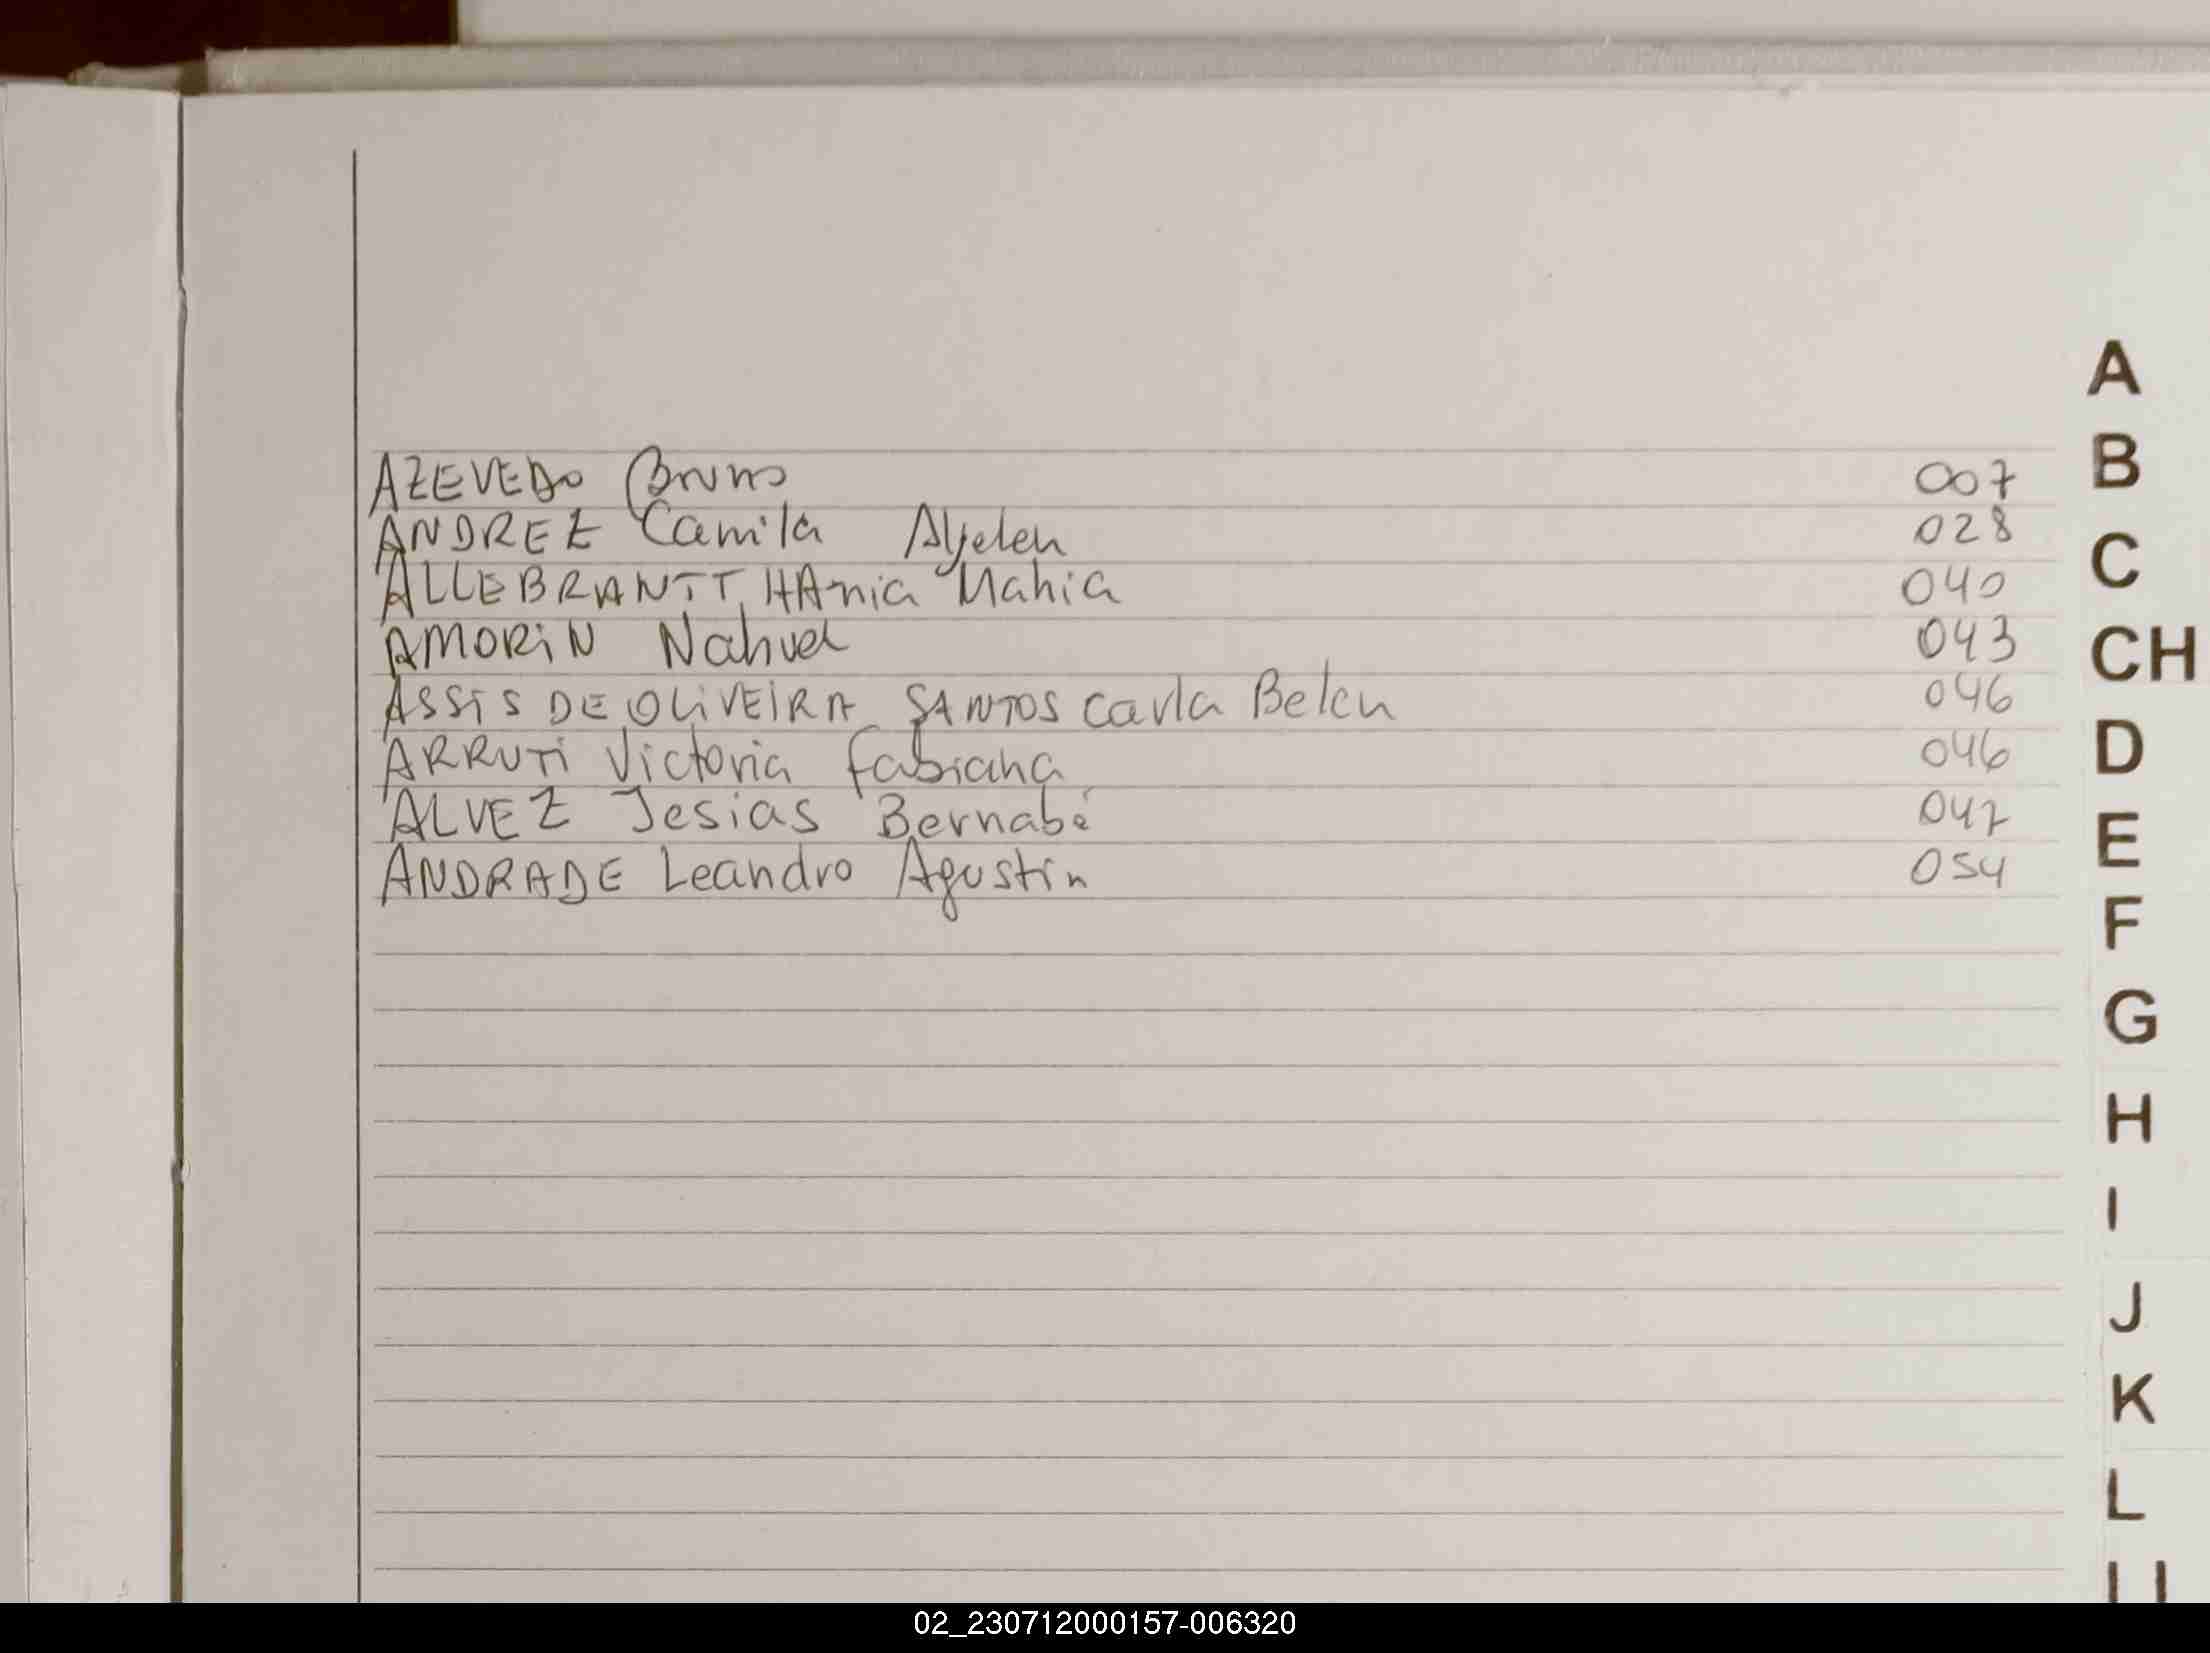 AZEVEDO Bruno 007
ANDREZ Camila Ayelen 028
ALLEBRANTT HAnia Nahia 040
AMORiN Nahuel 043
ASSiS DE OLiVEiRA SANTOS Carla Belen 046
ARRUTi Victoria Fabiana 046
ALVEZ Jesias Bernabé 047
ANDRADE Leandro Agustin 054
A
B
C
CH
D
E
F
G
H
I
J
K
L
02_230712000157-006320